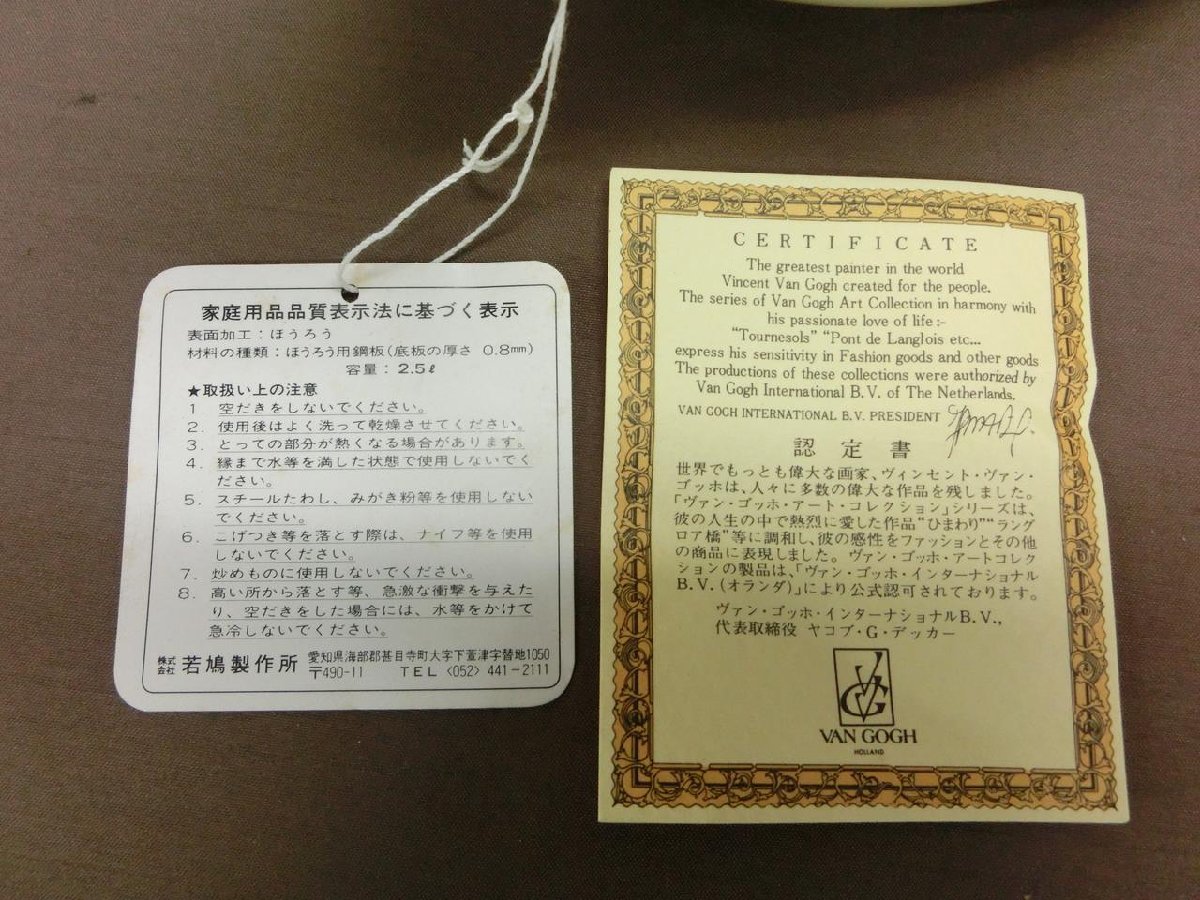 家庭用品品質表示法に基づく表示
表面加工：ほうろう
材料の種類：ほうろう用鋼板(底板の厚さ 0.8mm)
容量：2.5ℓ
★取扱い上の注意
1 空だきをしないでください。
2. 使用後はよく洗って乾燥させてください。
3. とっての部分が熱くなる場合があります。
4. 縁まで水等を満した状態で使用しないでく
ださい。
5. スチールたわし、みがき粉等を使用しない
でください。
6. こげつき等を落とす際は、ナイフ等を使用
しないでください。
7. 炒めものに使用しないでください。
8. 高い所から落とす等、急激な衝撃を与えた
り、空だきをした場合には、水等をかけて
急冷しないでください。
株式会社 若鳩製作所 愛知県海部郡甚目寺町大字下萱津字替地1050
〒490-11 TEL〈052〉441-2111
CERTIFICATE
The greatest painter in the world
Vincent Van Gogh created for the people.
The series of Van Gogh Art Collection in harmony with
his passionate love of life :-
"Tournesols" "Pont de Langlois etc...
express his sensitivity in Fashion goods and other goods
The productions of these collections were authorized by
Van Gogh International B.V. of The Netherlands.
VAN GOCH INTERNATIONAL B.V. PRESIDENT
認定書
世界でもっとも偉大な画家、ヴィンセント・ヴァン・
ゴッホは、人々に多数の偉大な作品を残しました。
「ヴァン・ゴッホ・アート・コレクション」シリーズは、
彼の人生の中で熱烈に愛した作品"ひまわり""ラング
ロア橋"等に調和し、彼の感性をファッションとその他
の商品に表現しました。ヴァン・ゴッホ・アートコレク
ションの製品は、「ヴァン・ゴッホ・インターナショナル
B.V.(オランダ)」により公式認可されております。
ヴァン・ゴッホ・インターナショナルB.V.,
代表取締役 ヤコブ・G・デッカー
VG
VAN GOGH
HOLLAND